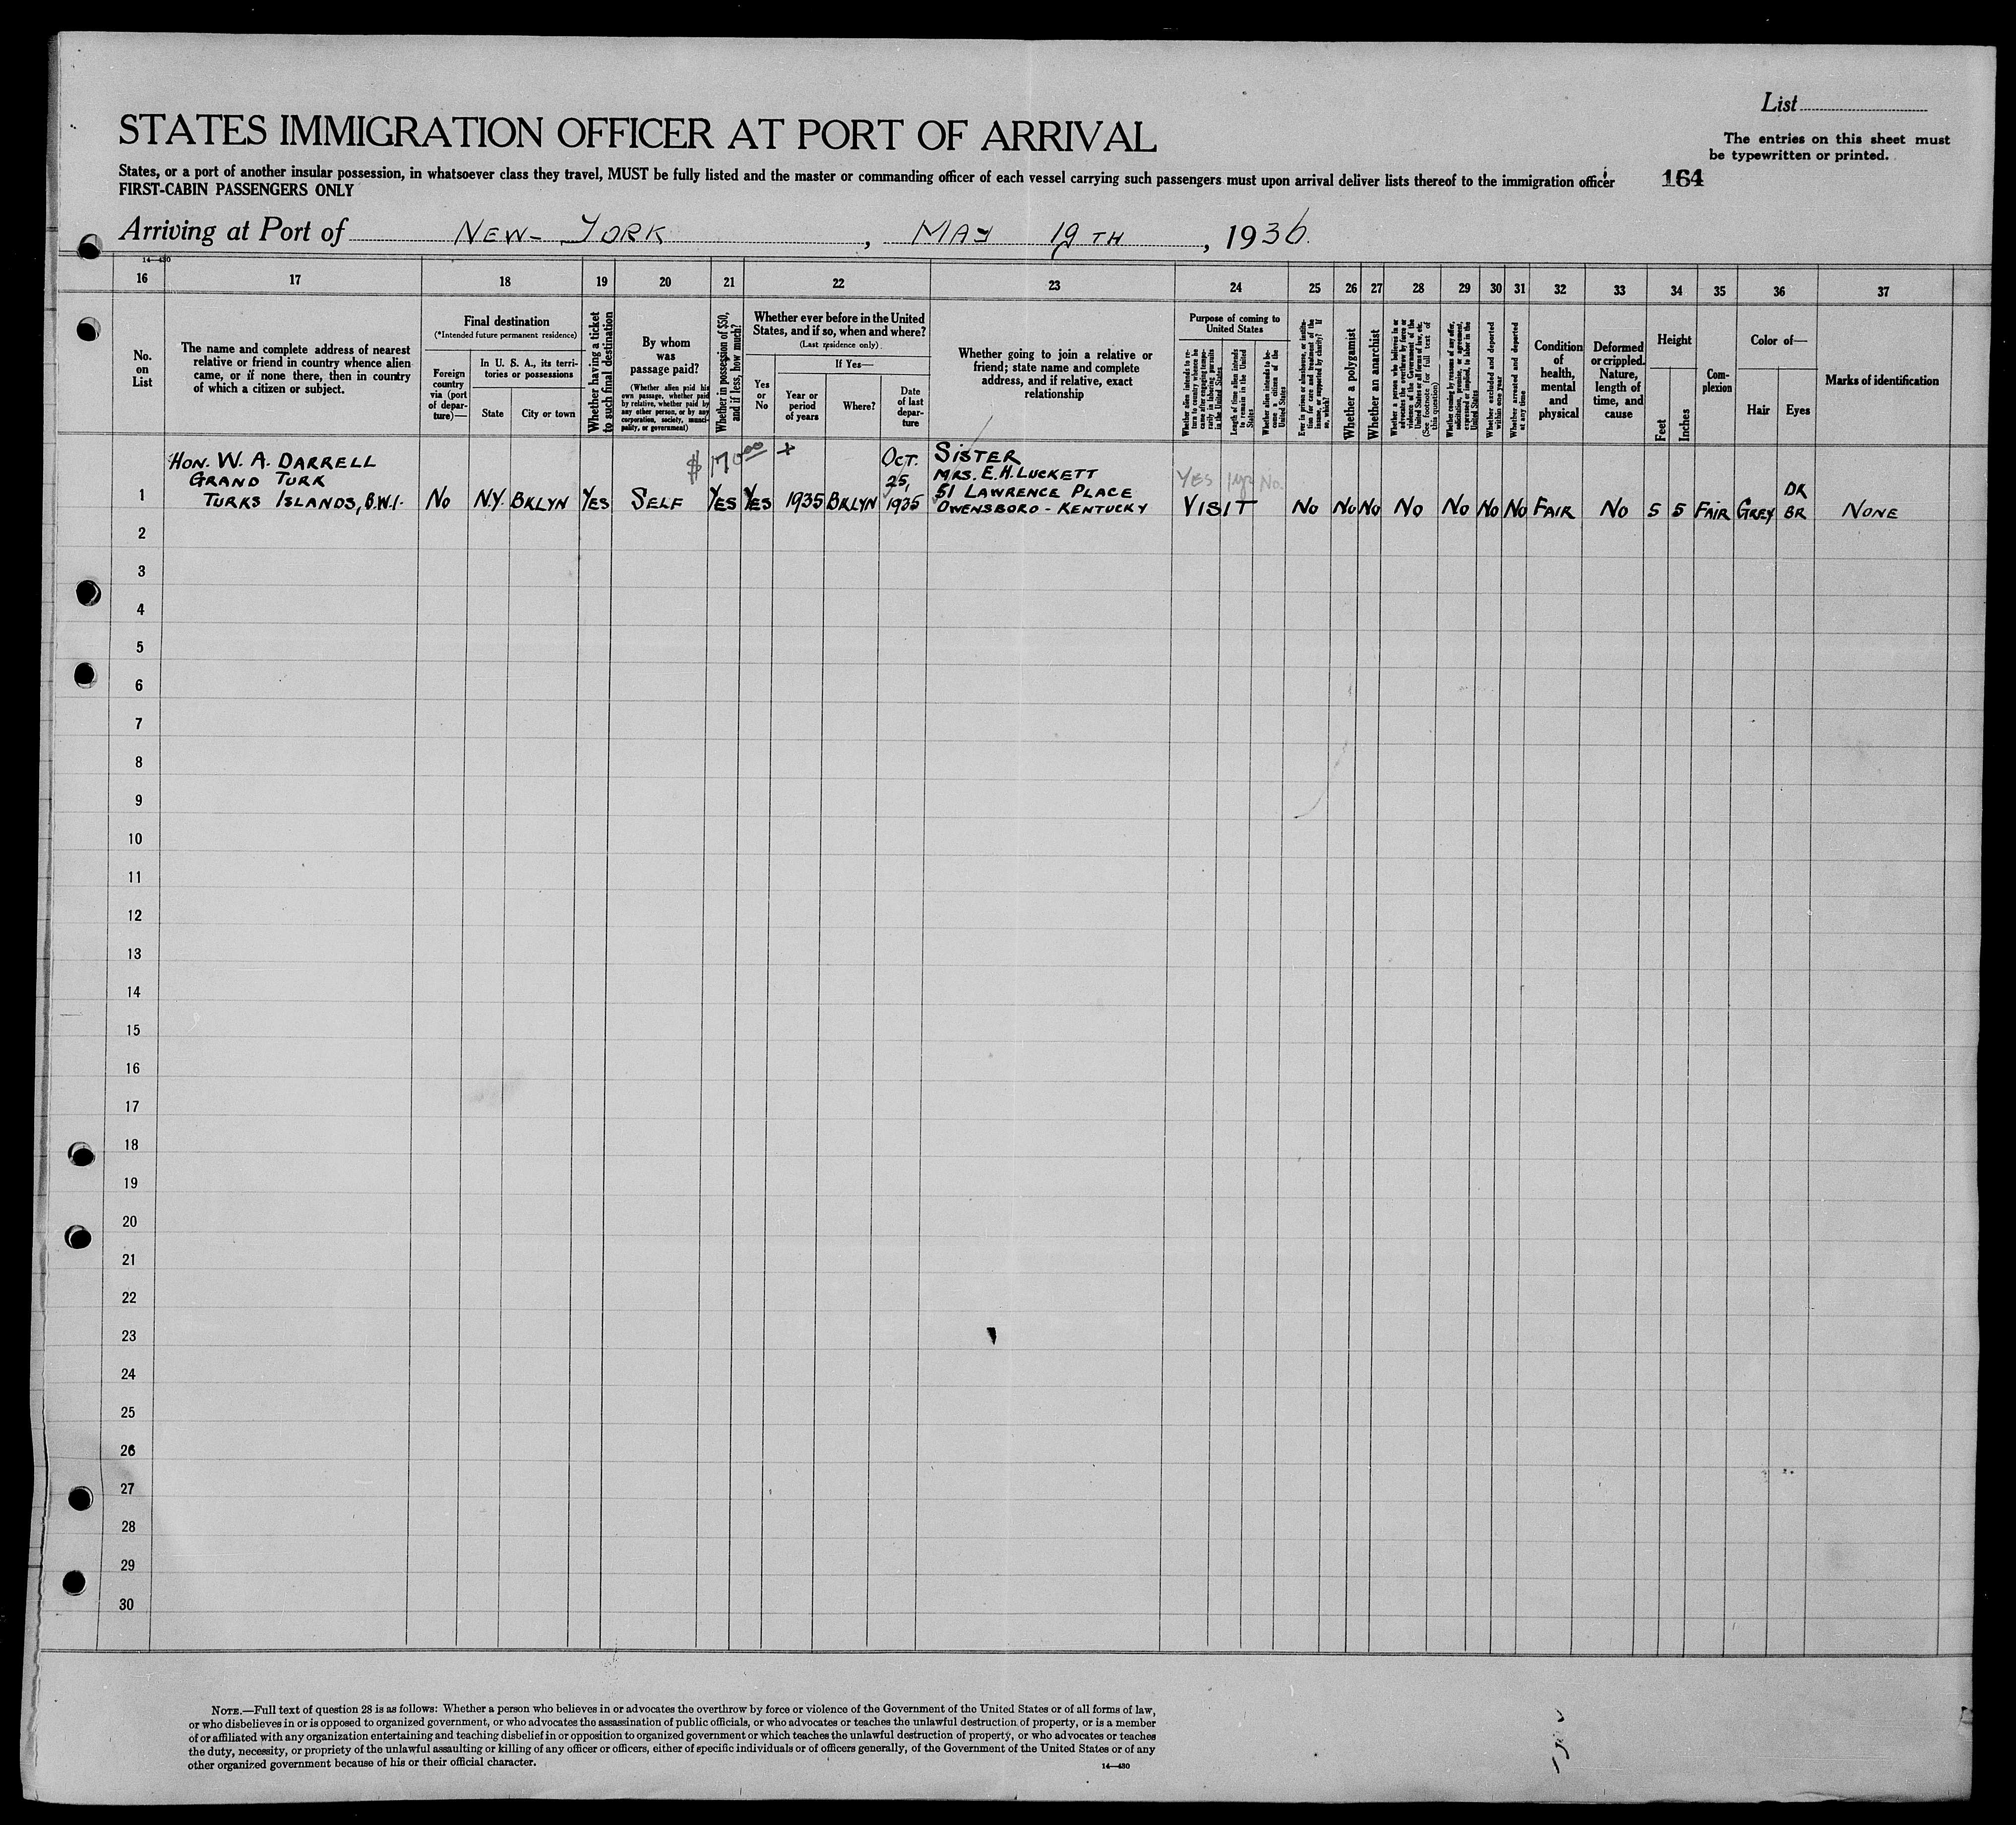 List
STATES IMMIGRATION OFFICER AT PORT OF ARRIVAL
The entries on this sheet must
be typewritten or printed.
States, or a port of another insular possession, in whatsoever class they travel, MUST be fully listed and the master or commanding officer of each vessel carrying such passengers must upon arrival deliver lists thereof to the immigration officer
164
FIRST-CABIN PASSENGERS ONLY
Arriving at Port of NEW-YORK, MAY 19TH, 1936.
14—430
16 17 18 19 20 21 22 23 24 25 26 27 28 29 30 31 32 33 34 35 36 37
No.
on
List
The name and complete address of nearest
relative or friend in country whence alien
came, or if none there, then in country
of which a citizen or subject.
Final destination
(*Intended future permanent residence)
Foreign
country
via (port
of depar-
ture)—
In U. S. A., its terri-
tories or possessions
State
City or town
Whether having a ticket
to such final destination
By whom
was
passage paid?
(Whether alien paid his
own passage, whether paid
by relative, whether paid by
any other person, or by any
corporation, society, munici-
pality, or government)
Whether in possession of $50,
and if less, how much?
Whether ever before in the United
States, and if so, when and where?
(Last residence only)
Yes
or
No
If Yes—
Year or
period
of years
Where?
Date
of last
depar-
ture
Whether going to join a relative or
friend; state name and complete
address, and if relative, exact
relationship
Purpose of coming to
United States
Whether alien intends to re-
turn to country whence he
came after engaging tempo-
rarily in laboring pursuits
in the United States
Length of time alien intends
to remain in the United
States
Whether alien intends to be-
come a citizen of the
United States
Ever in prison or almshouse, or institu-
tion for care and treatment of the
insane, or supported by charity? If
so, which?
Whether a polygamist
Whether an anarchist
Whether a person who believes in or
advocates the overthrow by force or
violence of the Government of the
United States or all forms of law, etc.
(See footnote for full text of
this question)
Whether coming by reasons of any offer,
solicitation, promise, or agreement,
expressed or implied, to labor in the
United States
Whether excluded and deported
within one year
Whether arrested and deported
at any time
Condition
of
health,
mental
and
physical
Deformed
or crippled.
Nature,
length of
time, and
cause
Height
Feet
Inches
Com-
plexion
Color of—
Hair
Eyes
Marks of identification
HON. W. A. DARRELL
GRAND TURK
TURKS ISLANDS, B.W.I.
1
NO
N.Y.
BKLYN
YES
SELF
$170.00 +
YES
YES
1935
BKLYN
OCT.
25,
1935
SISTER
MRS. E. H. LUCKETT
51 LAWRENCE PLACE
OWENSBORO - KENTUCKY
YES 1yr No.
VISIT
NO
NO
NO
NO
NO
NO
NO
FAIR
NO
5
5
FAIR
GREY
DK
BR
NONE
2
3
4
5
6
7
8
9
10
11
12
13
14
15
16
17
18
19
20
21
22
23
24
25
26
27
28
29
30
NOTE.—Full text of question 28 is as follows: Whether a person who believes in or advocates the overthrow by force or violence of the Government of the United States or of all forms of law,
or who disbelieves in or is opposed to organized government, or who advocates the assassination of public officials, or who advocates or teaches the unlawful destruction of property, or is a member
of or affiliated with any organization entertaining and teaching disbelief in or opposition to organized government or which teaches the unlawful destruction of property, or who advocates or teaches
the duty, necessity, or propriety of the unlawful assaulting or killing of any officer or officers, either of specific individuals or of officers generally, of the Government of the United States or of any
other organized government because of his or their official character.
14—430